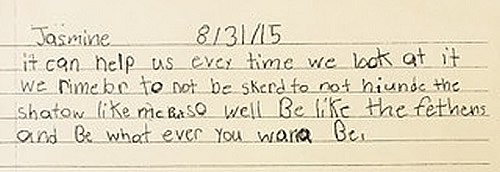 Jasmine 8/31/15
it can help us ever time we look at it
we rimebr to not be skerd to not hiunde the
shatow like me But so well Be like the fethens
and Be what ever you wana Be.